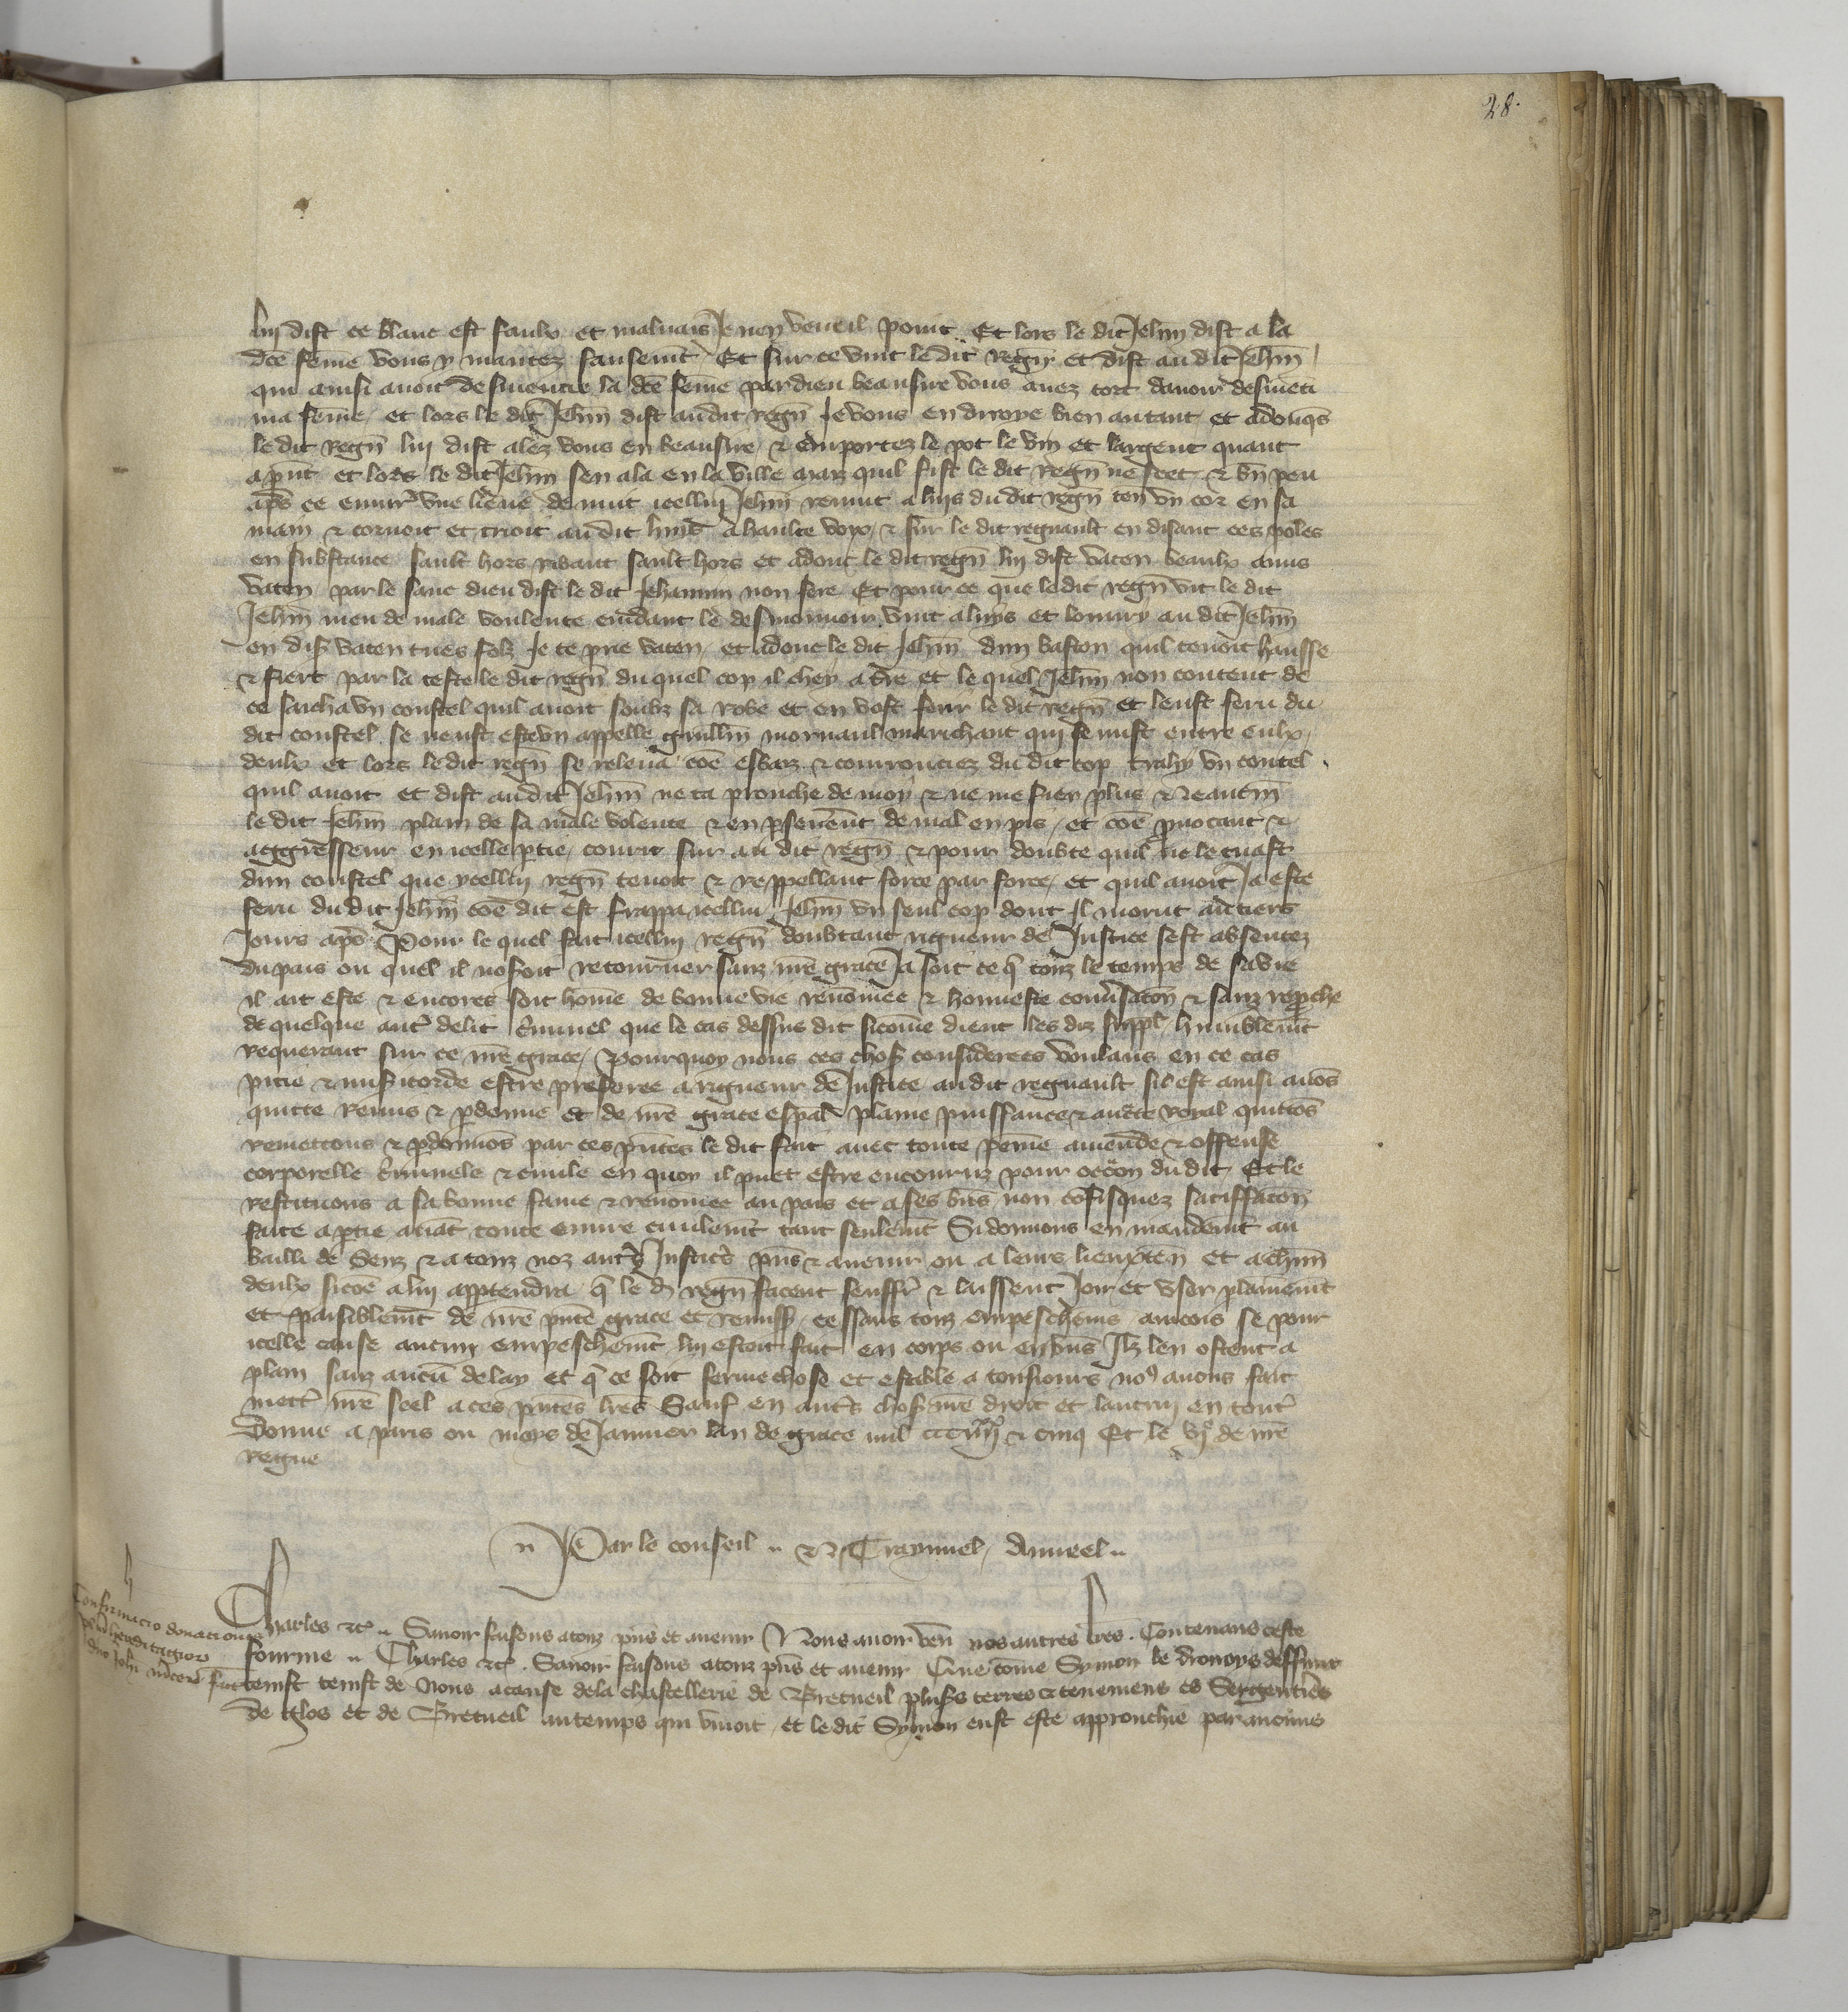 28.
luy dist ce blanc est faulx et malvais Je nen vueil point . Et lors le dit Jehin dist a la
dce feme vous y mantez fausemt Et sur ce vint le dit Regn et dist au dit Jehin
qui ainsi avoit desmentie la dce feme par dieu beausire vous avez tort davoir desmenti
ma feme / et lors le dit Jehin dist audit regn Je vous en diroye bien autant et adonqs
le dit regn luy dist alez vous en beausire / & emportez le pot le vin et largent quant
aprnt et lors le dit Jehin sen ala en la ville maiz quil fist le dit regn ne scet & un peu
aps ce envir une lieue de nuit icelluy Jehin revint a luis du dit regn ten un cor en sa
main & cornoit et crioit au dit huis a haulte voyx / & sur le dit regnault en disant ces poles
en substance sault hors ribaut sault hors et adonc le dit regn luy dist vaten beaulx amis
vaten par le sanc dieu dist le dit Jehannin non fere Et pour ce que le dit regn vit le dit
Jehin meu de male voulente cuidant le desmouvoir vint a luys et louvry au dit Jehin
en dis vaten tu es folz Je te prie vaten / et adonc le dit Jehin dun baston quil tenoit hausse
& fiert par la teste le dit regn du quel cop il chey a tre et le quel Jehin non content de
ce saicha un coustel quil avoit soubz sa robe et en volt ferir le dit regn et leust feru du
dit coustel se neust este un appelle guillin mornaul marichant qui se mist entre eulx
deulx et lors ledit regn se releva coe esbaiz & courouciez du dit cop trahy un coutel
quil avoit et dist audit Jehin ne ta prouche de moy & ne me fier plus & neantm
le dit Jehin plain de sa male volente & en pseverent de mal en pis / et coe pvocant &
aggresseur en icelle ptie / courir sur au dit regn & pour doubte quil ne le tuast
dun coustel que ycelluy regn tenoit & reppellant force par force / et quil avoit Ja este
feru du dit Jehin coe dit est frappa icellui Jehin un seul cop dont Il morut au tiers
Jours aps Pour le quel fait icelluy regn doubtant rigueur de Justice sest absentez
du pais ou quel il nosoit retourner sanz nre grace Ja soit ce q touz le temps de sa vie
il ait este & encores soit home de bonne vie renomee & honneste convsacon & sanz reproche
de quelque autr delit criminel que le cas dessus dit sicome dient les diz suppl humblemt
requerant sur ce nre grace / Pourquoy nous ces chos considerees voulans en ce cas
pitie & misicorde estre preferee a rigueur de Justice audit regnault sil est ainsi avos
quitte remis & pdonne et de nre grace espal plaine puissance & aucte royal quittos
remettons & pdonnos par ces pntes le dit fait avec toute peine amende & offense
corporelle criminele & civile en quoy il puet estre encouruz pour occon du dit Et le
restituons a sa bonne fame & renomee au pais et a ses bns non cofisquez satiffacon
faite a ptie avat toute euvre civilemt tant seulemt Si donnons en mandemt au
bailli de Senz & a touz noz autrs Justics pns & avenir ou a leurs lieuxten et a chun
deulx sicoe a luy apptendra q le d regn facent seuffr & laissent Joir et user plainemt
et paisiblemt de nre pnte grace et remiss cessans touz empeschems aincois se pour
icelle cause aucun empeschemt luy estoit fait en corps ou en bns Ilz len ostent a
plain sanz aucu delay et q ce soit ferme chose et estable a tousiours no9 avons fait
mettr nre seel a ces pntes lres Sauf en autrs chos nre droit et lautruy en tout
Donne a paris ou moys de Janvier lan de grace mil ccc iiiixx & cinq Et le vje de nre
regne
Par le conseil .. N Craymuel / Anneel ..
Confirmacio donacionis
fut
Charles &c .. Savoir faisons a touz pns et avenir Nous avoir veu nos autres lres . Contenans ceste
fourme .. Charles &c . Savoir faisons a touz pns et avenir Que come Symon le dronoys deffunt
tenist tenist de Nous a cause de la chastellerie de Bretueil plusrs terres & tenemens es Sergenties
de glos et de Bretueil au temps qui vivoit / et le dit Symon eust este approuchie par aucuns